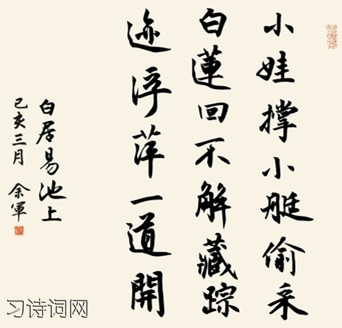 小娃撑小艇偷采
白蓮回不解藏踪
迹浮萍一道開
白居易池上
己亥三月 余軍
习诗词网